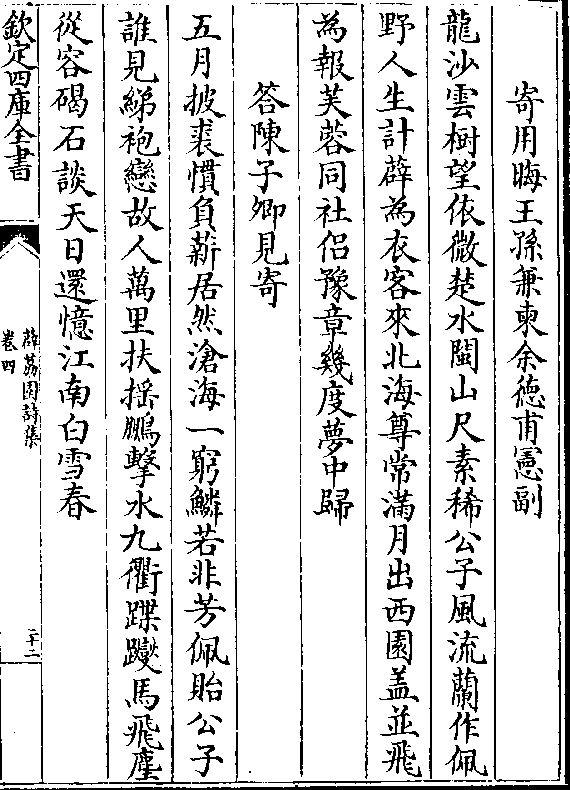 寄用晦王孫兼柬余德甫憲副
龍沙雲樹望依微楚水閩山尺素稀公子風流蘭作佩
野人生計薜為衣客來北海尊常滿月出西園盖並飛
為報芙蓉同社侣豫章幾度夢中歸
答陳子卿見寄
五月披裘慣負薪居然滄海一窮鱗若非芳佩貽公子
誰見綈袍戀故人萬里扶揺鵬擊水九衢蹀躞馬飛塵
從容碣石談天日還憶江南白雪春
欽定四庫全書
薜荔園詩集
卷四
二十二